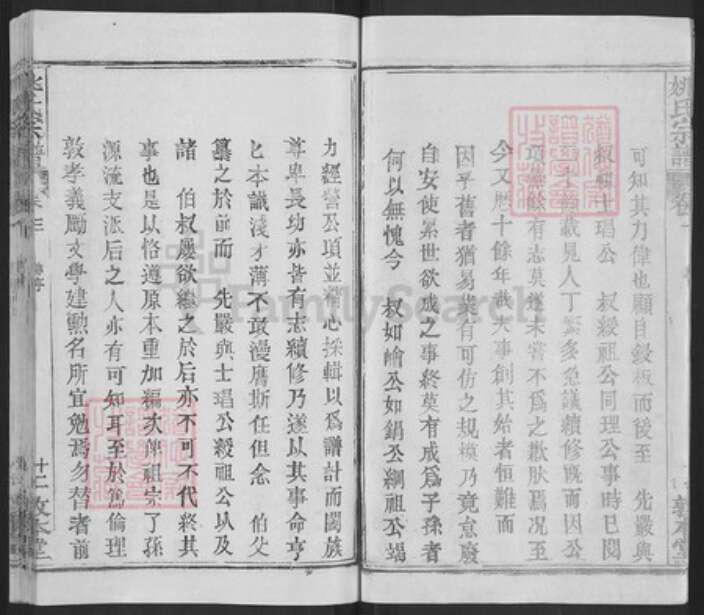 可知其力偉也顧自鋟板而後至　先嚴與
叔輯士琩公　叔綬祖公同理公事時已閱
載見人丁繁多急議續修旣而因公
項無餘有志莫遂未嘗不爲之歉肰焉况至
今又歷十餘年哉夫事創其始者恒難而
因乎舊者猶易茣有可仿之規模乃竟怠廢
自安使累世欲成之事終莫有成爲子孫者
何以無愧今　叔如嶒公如鍋公綱祖公竭
力經營公項並潛心採輯以爲譜計而闔族
尊卑長幼亦皆有志續修乃遂以其事命亨
匕本識淺才薄不敢漫膺斯任但念　伯父
纂之於前而　先嚴與士琩公綬祖公以及
諸　伯叔屢欲繼之於后亦不可不代終其
事也是以恪遵原本重加編次俾祖宗了孫
源流支派后之人亦有可知耳至於篤倫理
敦孝義勵文學建勲名所宜勉焉勿替者前
姚氏宗譜
卷三
十二
敦本堂
姚氏宗譜
敦本堂
FamilySearch